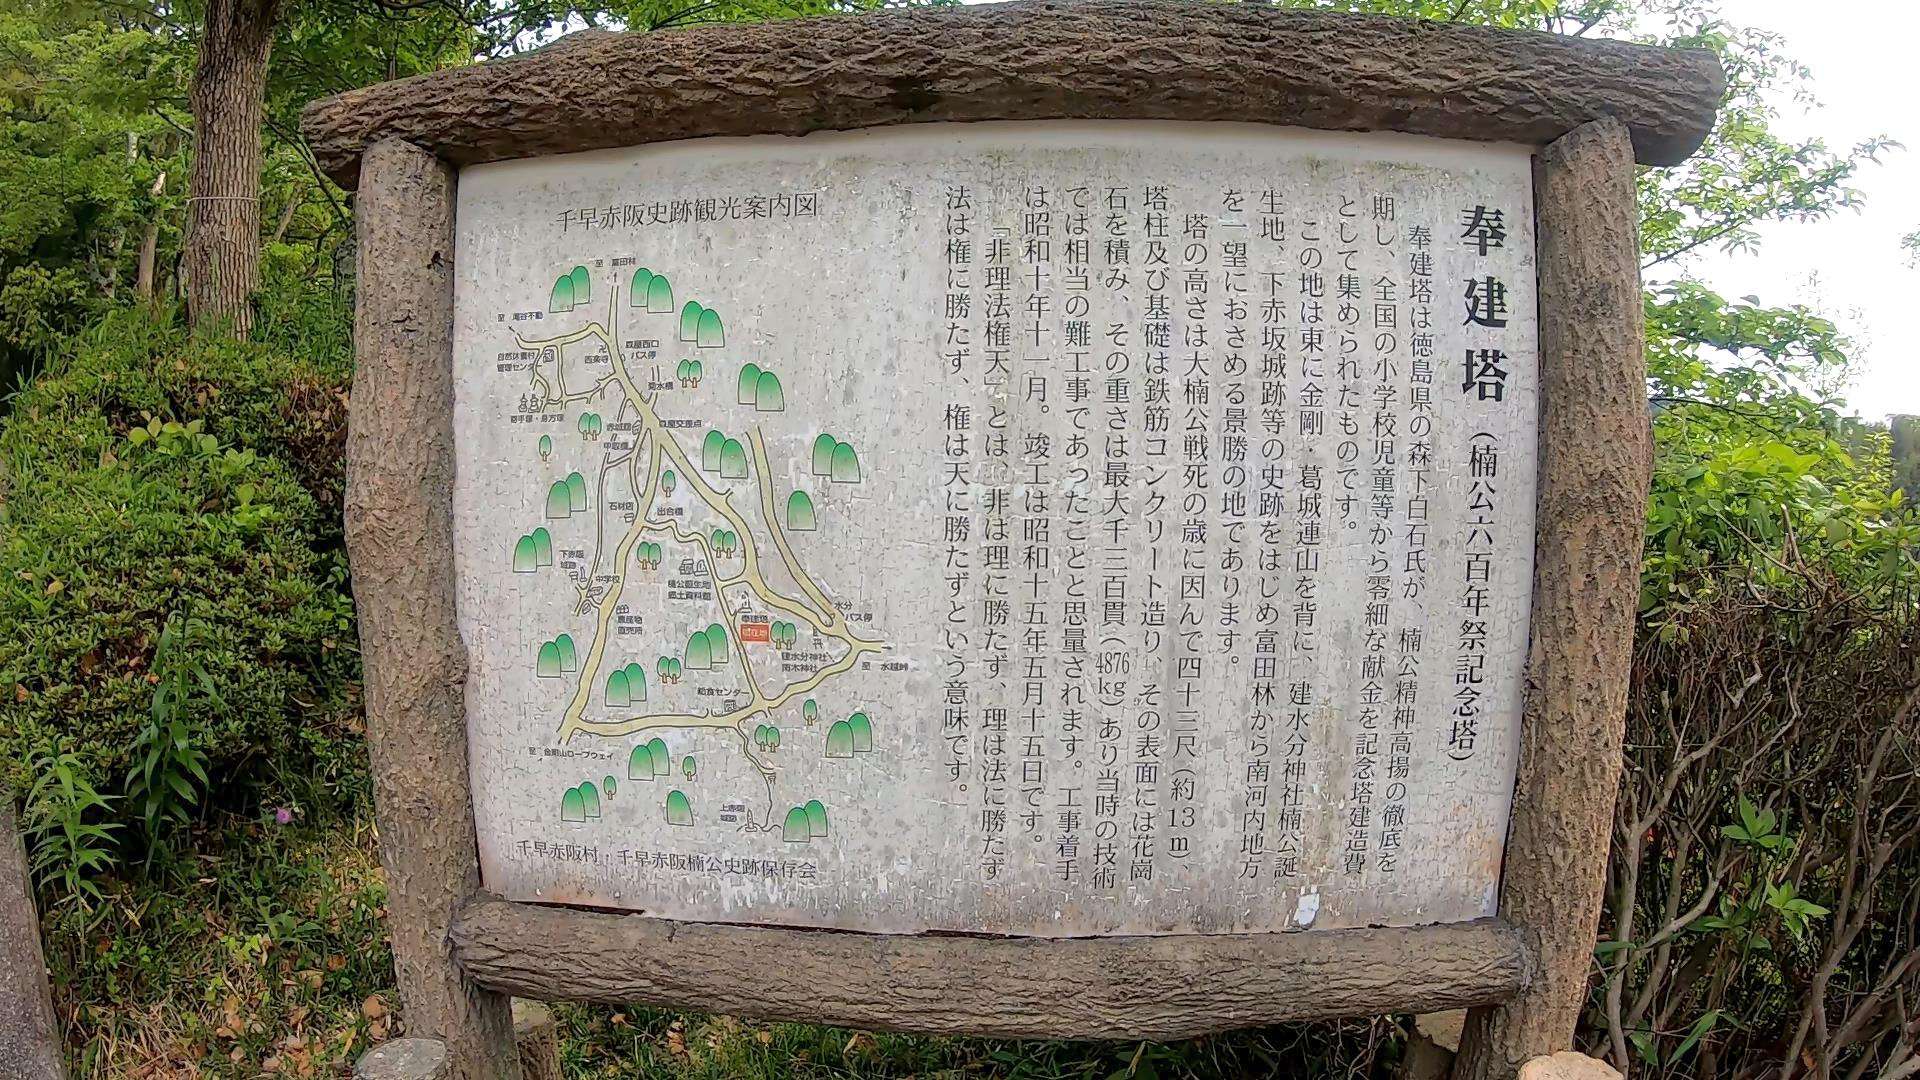 奉建塔（楠公六百年祭記念塔）
奉建塔は徳島県の森下白石氏が、楠公精神高揚の徹底を
期し、全国の小学校児童等から零細な献金を記念塔建造費
として集められたものです。
この地は東に金剛・葛城連山を背に、建水分神社楠公誕
生地、下赤坂城跡等の史跡をはじめ富田林から南河内地方
を一望におさめる景勝の地であります。
塔の高さは大楠公戦死の歳に因んで四十三尺（約13m）、
塔柱及び基礎は鉄筋コンクリート造り、その表面には花崗
石を積み、その重さは最大千三百貫（4876kg）あり当時の技術
では相当の難工事であったことと思量されます。工事着手
は昭和十年十一月。竣工は昭和十五年五月十五日です。
「非理法権天」とは、非は理に勝たず、理は法に勝たず
法は権に勝たず、権は天に勝たずという意味です。
千早赤阪史跡観光案内図
至 富田林
至 滝谷不動
自然休養村
管理センター
西楽寺
森屋西口
バス停
菊水橋
寄手塚・身方塚
赤城橋
中取橋
森屋交差点
石材店
出合橋
下赤阪
城跡
中学校
楠公誕生地
郷土資料館
農産物
直売所
奉建塔
現在地
水分
バス停
建水分神社
南木神社
至 水越峠
給食センター
至 金剛山ロープウェイ
上赤阪
城跡
千早赤阪村・千早赤阪楠公史跡保存会